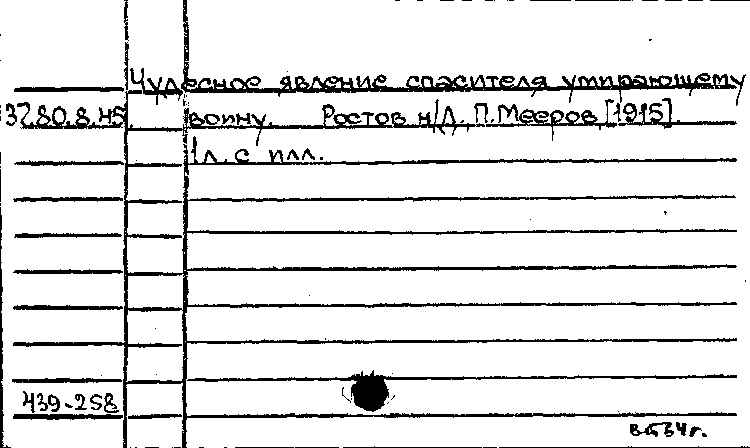 Чудесное явление спасителя умирающему
37.80.8.45 воину. Ростов н/Д. П. Мееров, [1915].
1 л. с илл.
439-258